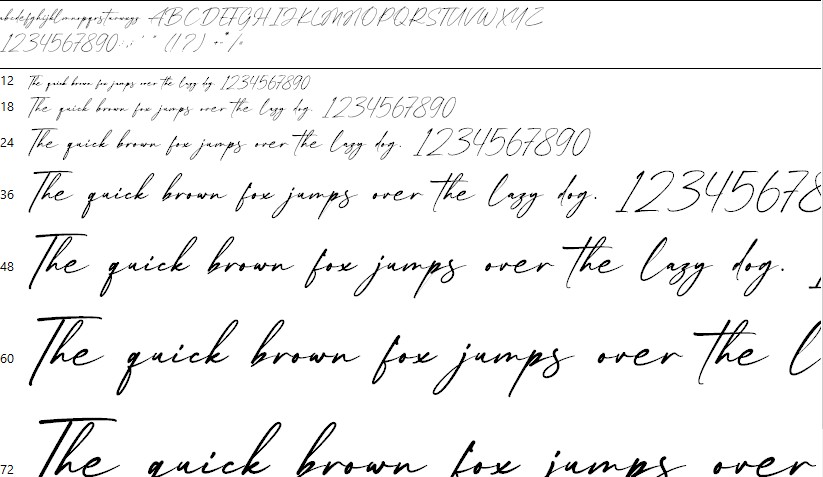 abcdefghijklmnopqrstuvwxyz ABCDEFGHIJKLMNOPQRSTUVWXYZ
1234567890.:,; ' " (!?) +-*/=
12 The quick brown fox jumps over the lazy dog. 1234567890
18 The quick brown fox jumps over the lazy dog. 1234567890
24 The quick brown fox jumps over the lazy dog. 1234567890
36 The quick brown fox jumps over the lazy dog. 12345678
48 The quick brown fox jumps over the lazy dog. 1
60 The quick brown fox jumps over the l
72 The quick brown fox jumps over